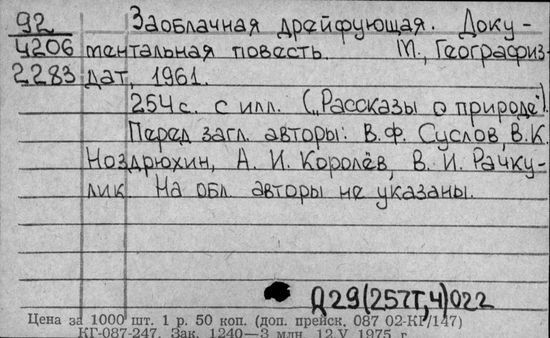 92 Заоблачная дрейфующая. Доку-
4206 ментальная повесть. М., Географиз-
2283 дат, 1961.
254 с. с илл. („Рассказы о природе").
Перед загл. авторы: В.Ф. Суслов, В.К.
Ноздрюхин, А. И. Королёв, В. И. Рачку-
лик. На обл. авторы не указаны.
Д29(257Г,4)022
Цена за 1000 шт. 1 р. 50 коп. (доп. прейск. 087 02-КГ/147)
КГ-087-247. Зак. 1240—3 млн. 12.V 1975 г.